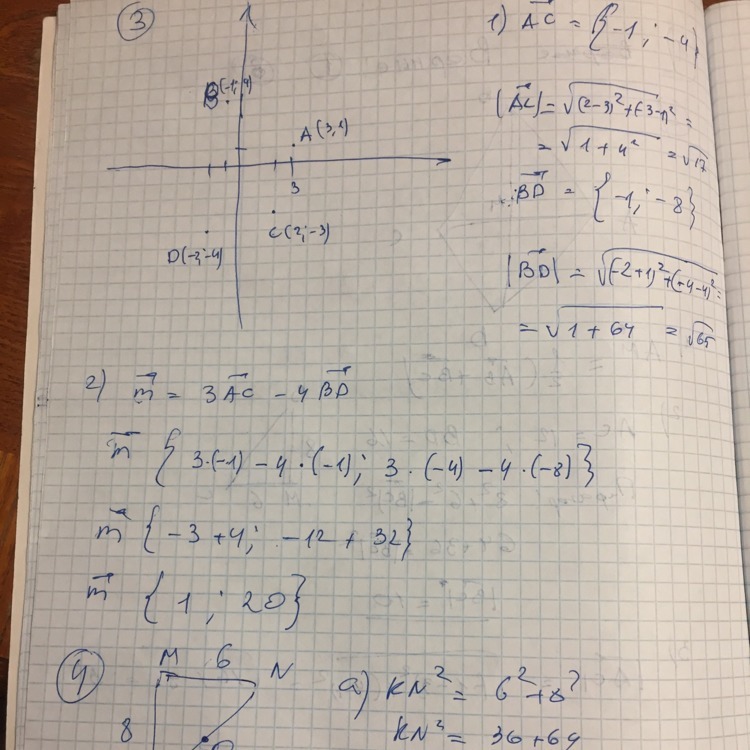 ③
B(-1; 4)
A(3, 1)
3
C(2; -3)
D(-2; -4)
1) AC = {-1; -4}
|AC| = √(2-3)²+(-3-1)² =
= √1+4² = √17
BD = {-1; -8}
|BD| = √(-2+1)²+(-4-4)² =
= √1+64 = √65
2) m = 3AC - 4BD
m {3·(-1) - 4·(-1); 3·(-4) - 4·(-8)}
m {-3+4; -12+32}
m {1; 20}
④
M 6 N
8
a) KN² = 6²+8²
KN² = 36+64